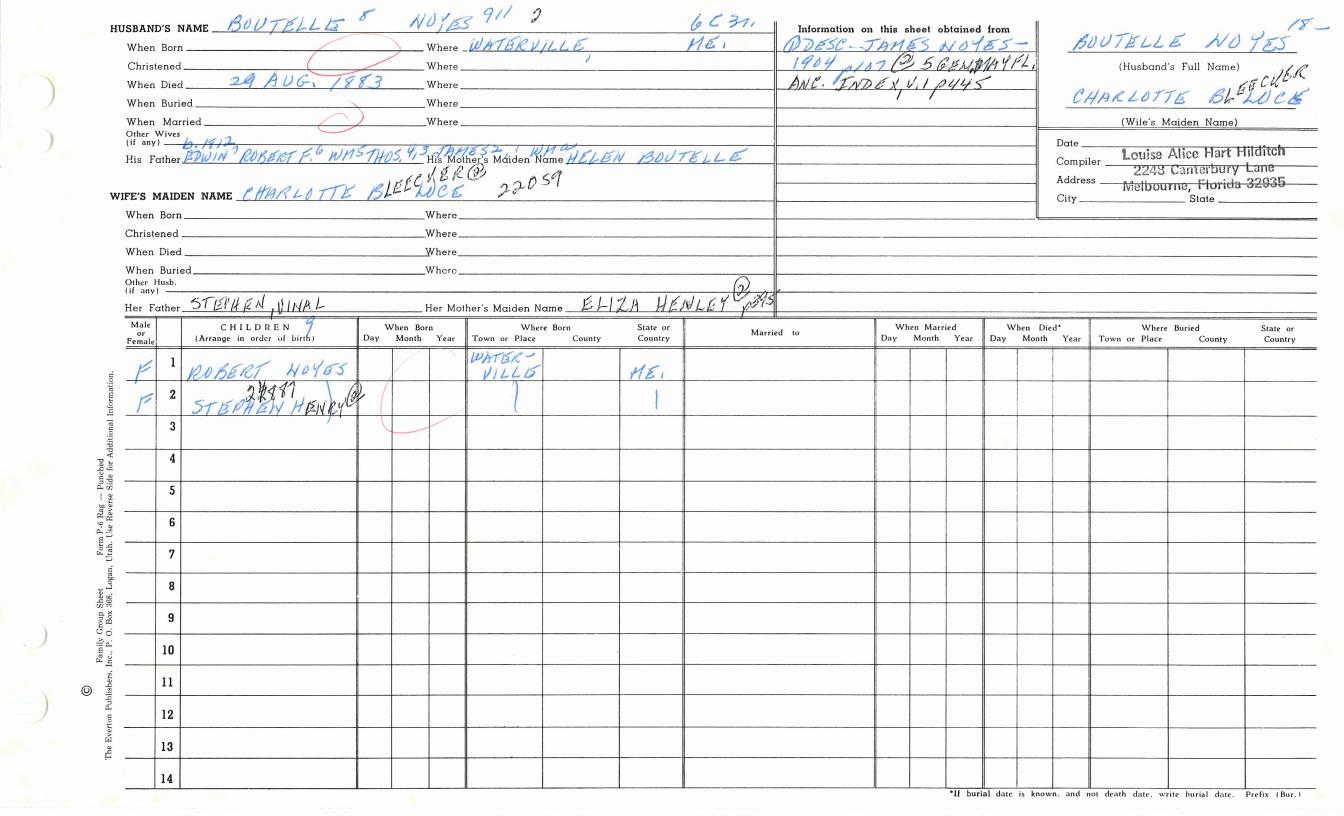 HUSBAND'S NAME BOUTELLE 8 NOYES 911 2 6C31.
When Born Where WATERVILLE, ME.
Christened Where
When Died 29 AUG. 1883 Where
When Buried Where
When Married Where
Other Wives
(if any) b. 1812,
His Father EDWIN 7 ROBERT F.6 WM5 THOS. 4,3 JAMES2, 1 WMa His Mother's Maiden Name HELEN BOUTELLE
WIFE'S MAIDEN NAME CHARLOTTE BLEECKER② LUCE 22059
When Born Where
Christened Where
When Died Where
When Buried Where
Other Husb.
(if any)
Her Father STEPHEN, VINAL Her Mother's Maiden Name ELIZA HENLEY ② p395
Information on this sheet obtained from
① DESC-JAMES NOYES-
1904 p107 ② 5 GEN. MAYFL.
ANC. INDEX, V.1 p445
18-
BOUTELLE NOYES
(Husband's Full Name)
CHARLOTTE BLEECKER LUCE
(Wife's Maiden Name)
Date
Compiler Louise Alice Hart Hilditch
Address 2243 Canterbury Lane
Melbourne, Florida 32935
City State
Male or Female CHILDREN 9 (Arrange in order of birth) When Born Day Month Year Where Born Town or Place County State or Country Married to When Married Day Month Year When Died* Day Month Year Where Buried Town or Place County State or Country
F 1 ROBERT NOYES WATER-VILLE ME.
F 2 STEPHEN HENRY②
3
4
5
6
7
8
9
10
11
12
13
14
*If burial date is known, and not death date, write burial date. Prefix (Bur.)
© Family Group Sheet Form P-6 Rag — Punched
The Everton Publishers, Inc., P. O. Box 368, Logan, Utah. Use Reverse Side for Additional Information.